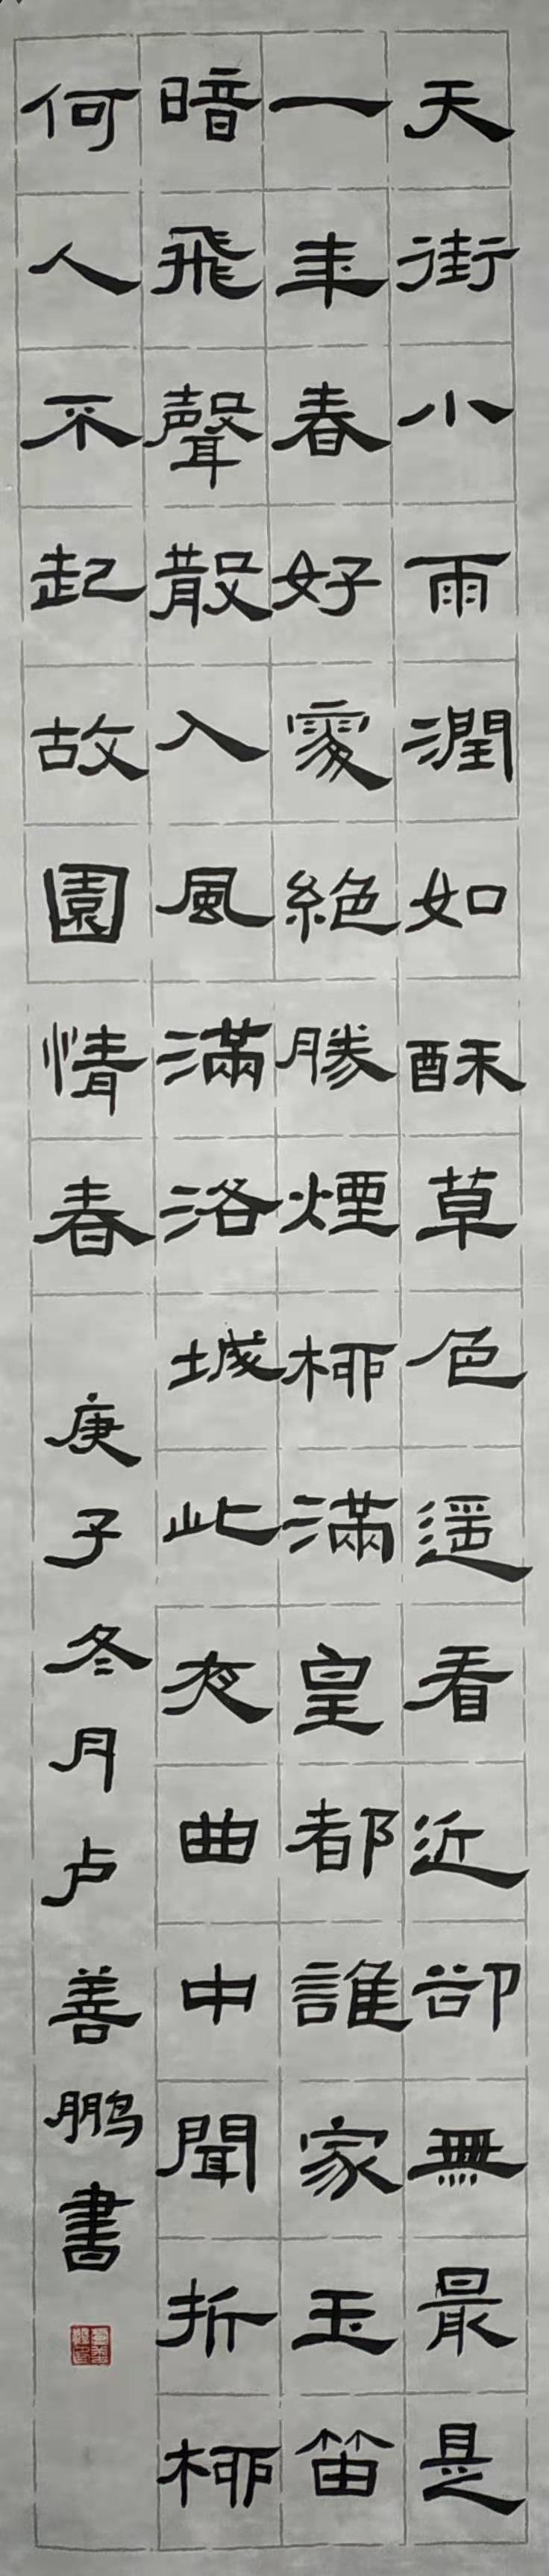 天街小雨潤如酥草色遥看近卻無最是
一年春好處絶勝煙柳滿皇都誰家玉笛
暗飛聲散入風滿洛城此夜曲中聞折柳
何人不起故園情春
庚子冬月卢善鹏書